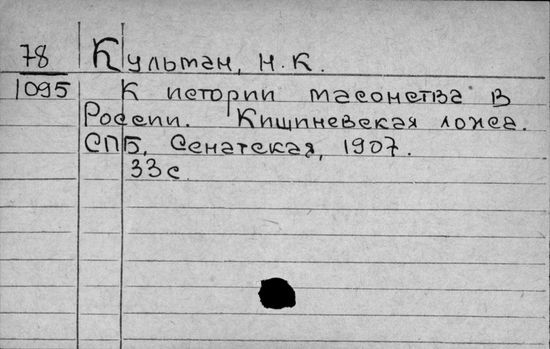 78 Кульман, Н.К.
1095 К истории масонства в
России. Кишиневская ложа.
СПБ, Сенатская, 1907.
33с